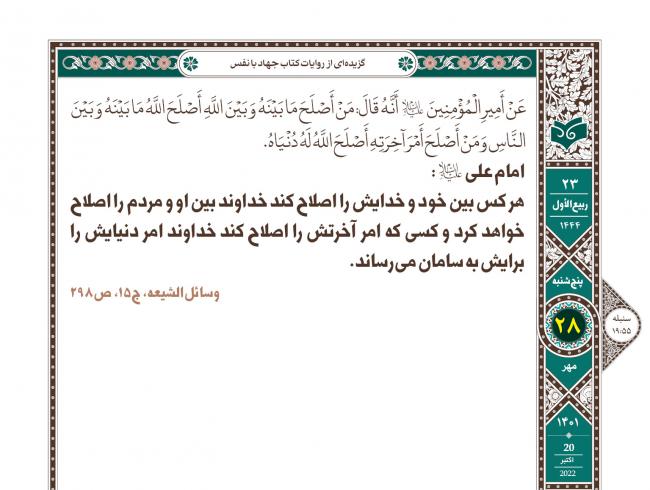 گزیده‌ای از روایات کتاب جهاد با نفس
عَنْ أَمِيرِ الْمُؤْمِنِينَ علیه‌السلام أَنَّهُ قَالَ: مَنْ أَصْلَحَ مَا بَيْنَهُ وَ بَيْنَ اللَّهِ أَصْلَحَ اللَّهُ مَا بَيْنَهُ وَ بَيْنَ
النَّاسِ وَ مَنْ أَصْلَحَ أَمْرَ آخِرَتِهِ أَصْلَحَ اللَّهُ لَهُ دُنْيَاهُ.
امام علی علیه‌السلام :
هر کس بین خود و خدایش را اصلاح کند خداوند بین او و مردم را اصلاح
خواهد کرد و کسی که امر آخرتش را اصلاح کند خداوند امر دنیایش را
برایش به سامان می‌رساند.
وسائل الشیعه، ج۱۵، ص۲۹۸
۲۳
ربیع‌الأول
۱۴۴۴
پنج‌شنبه
۲۸
سنبله
۱۹:۵۵
مهر
۱۴۰۱
20
اکتبر
2022